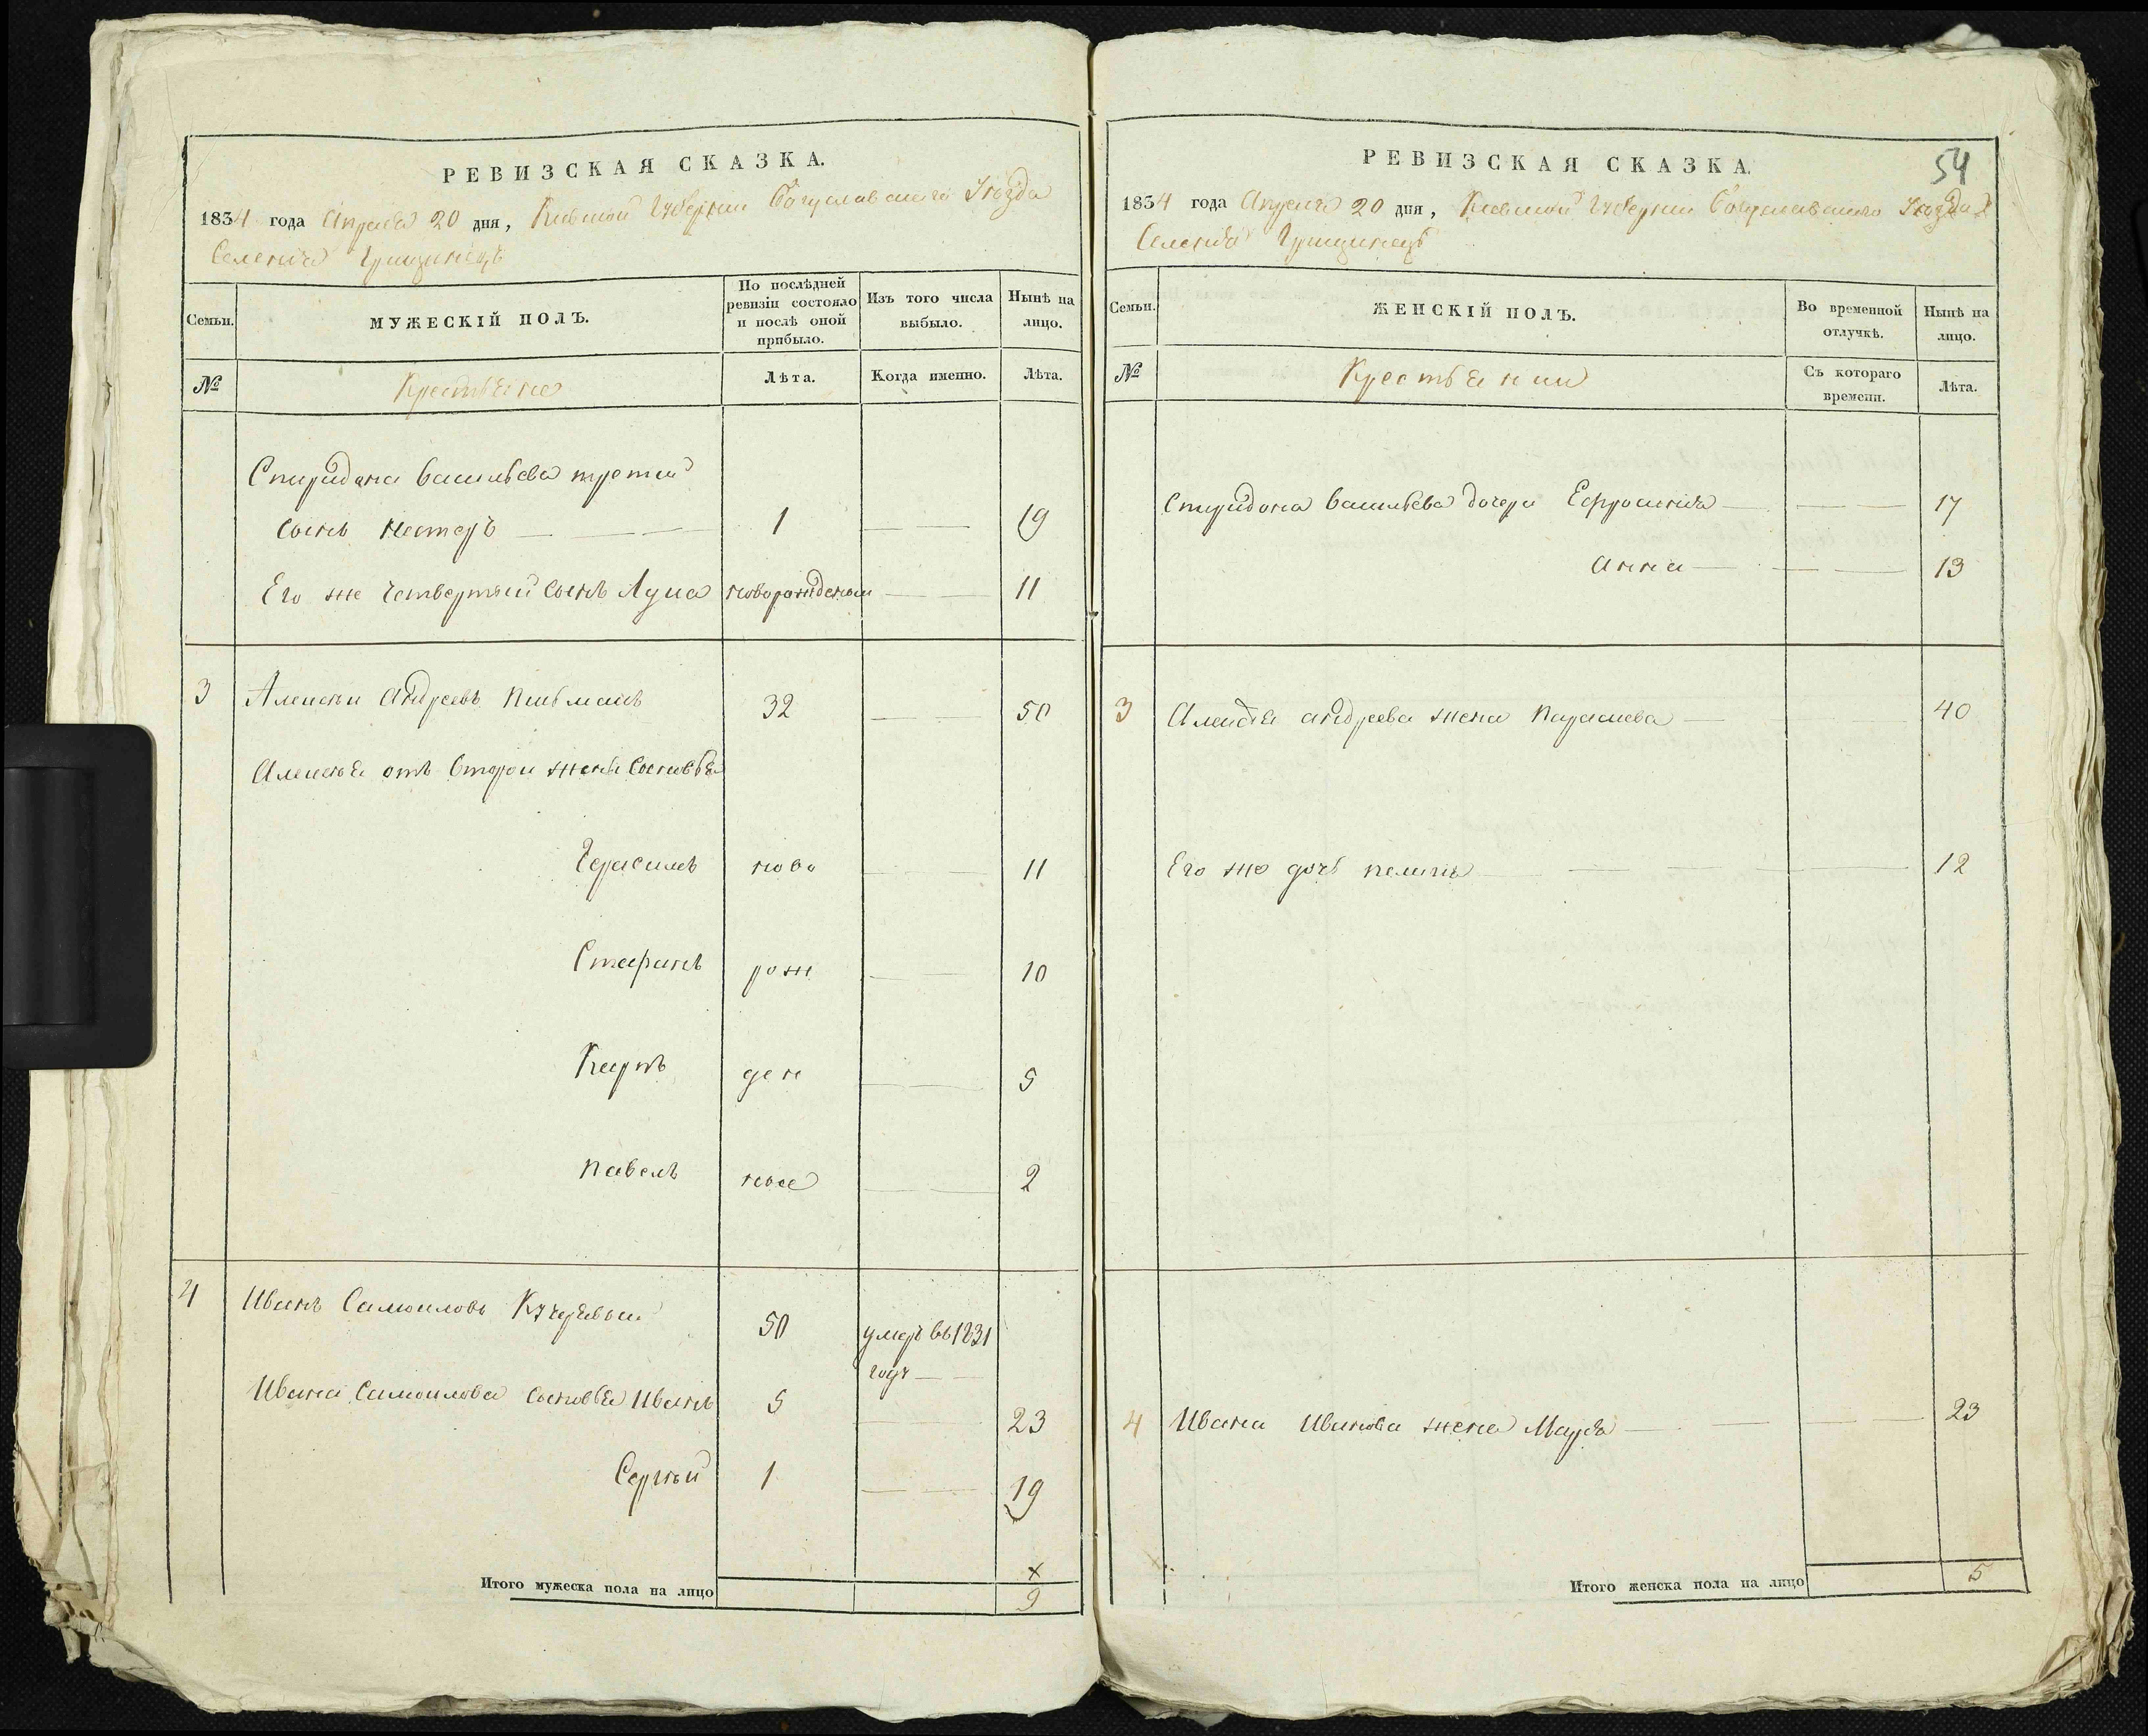 РЕВИЗСКАЯ СКАЗКА.
1834 года Апреля 20 дня, Киевской Губернии Богуславского Уезда
Селения Грищинець
Семьи.
МУЖЕСКІЙ ПОЛЪ.
По послѣдней ревизіи состояло и послѣ оной прибыло.
Изъ того числа выбыло.
Нынѣ на лицо.
№
Крестьяне
Лѣта.
Когда именно.
Лѣта.
Спиридона Васильева третий
сынъ Нестеръ — — 1 — — 19
Его же четвертый сынъ Лука новорожденый — — 11
3 Алексей Андреевъ 32 — — 50
Алексея отъ второй жены сыновья
Герасимъ ново — — 11
Стефанъ рож — — 10
Карпъ ден — — 5
Павелъ ные — — 2
4 Иванъ Самойловъ Кучерявый 50 умеръ въ 1831
году — —
Ивана Самойлова сыновья Иванъ 5 — — 23
Сергѣй 1 — — 19
х
Итого мужеска пола на лицо 9
54
РЕВИЗСКАЯ СКАЗКА.
1834 года Апреля 20 дня, Киевской Губернии Богуславского Уезда
Селения Грищинець
Семьи.
ЖЕНСКІЙ ПОЛЪ.
Во временной отлучкѣ.
Нынѣ на лицо.
№
Крестьянки
Съ котораго времени.
Лѣта.
Спиридона Васильева дочери Ефросиния — — — 17
Анна — — — 13
3 Алексея Андреева жена Параскева — 40
Его же дочь — — — 12
4 Ивана Иванова жена Марья — — 23
Итого женска пола на лицо 5